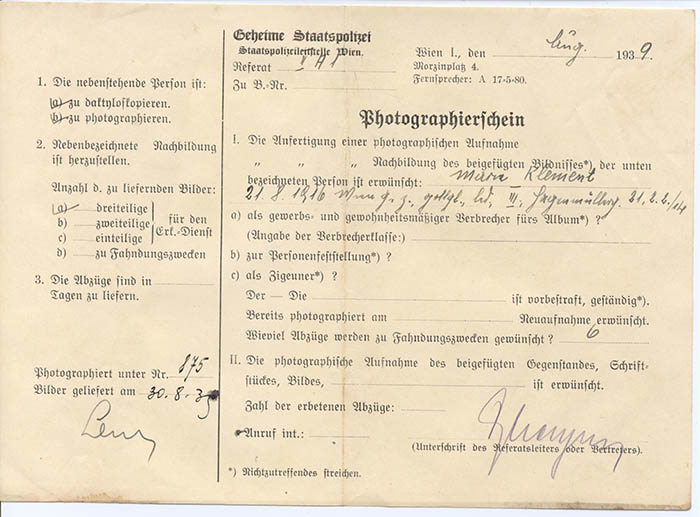 Geheime Staatspolizei
Staatspolizeileitstelle Wien.
Referat II H 1
Zu B.-Nr.
Wien I., den Aug. 1939.
Morzinplatz 4.
Fernsprecher: A 17-5-80.
1. Die nebenstehende Person ist:
a) zu daktyloskopieren.
b) zu photographieren.
2. Nebenbezeichnete Nachbildung
ist herzustellen.
Anzahl d. zu liefernden Bilder:
a) dreiteilige
b) zweiteilige
c) einteilige
für den
Erk.-Dienst
d) zu Fahndungszwecken
3. Die Abzüge sind in
Tagen zu liefern.
Photographiert unter Nr. 875
Bilder geliefert am 30.8.39
Photographierschein
I. Die Anfertigung einer photographischen Aufnahme
„ „ „ Nachbildung des beigefügten Bildnisses*), der unten
bezeichneten Person ist erwünscht: Marie Klement
21.8.1916 Wien g. z., gottgl., led., III., Hagenmüllerg. 21, 2. 2./14
a) als gewerbs- und gewohnheitsmäßiger Verbrecher fürs Album*) ?
(Angabe der Verbrecherklasse:)
b) zur Personenfeststellung*) ?
c) als Zigeuner*) ?
Der — Die ist vorbestraft, geständig*).
Bereits photographiert am Neuaufnahme erwünscht.
Wieviel Abzüge werden zu Fahndungszwecken gewünscht ? 6
II. Die photographische Aufnahme des beigefügten Gegenstandes, Schrift-
stückes, Bildes, ist erwünscht.
Zahl der erbetenen Abzüge:
Anruf int.:
(Unterschrift des Referatsleiters oder Vertreters).
*) Nichtzutreffendes streichen.